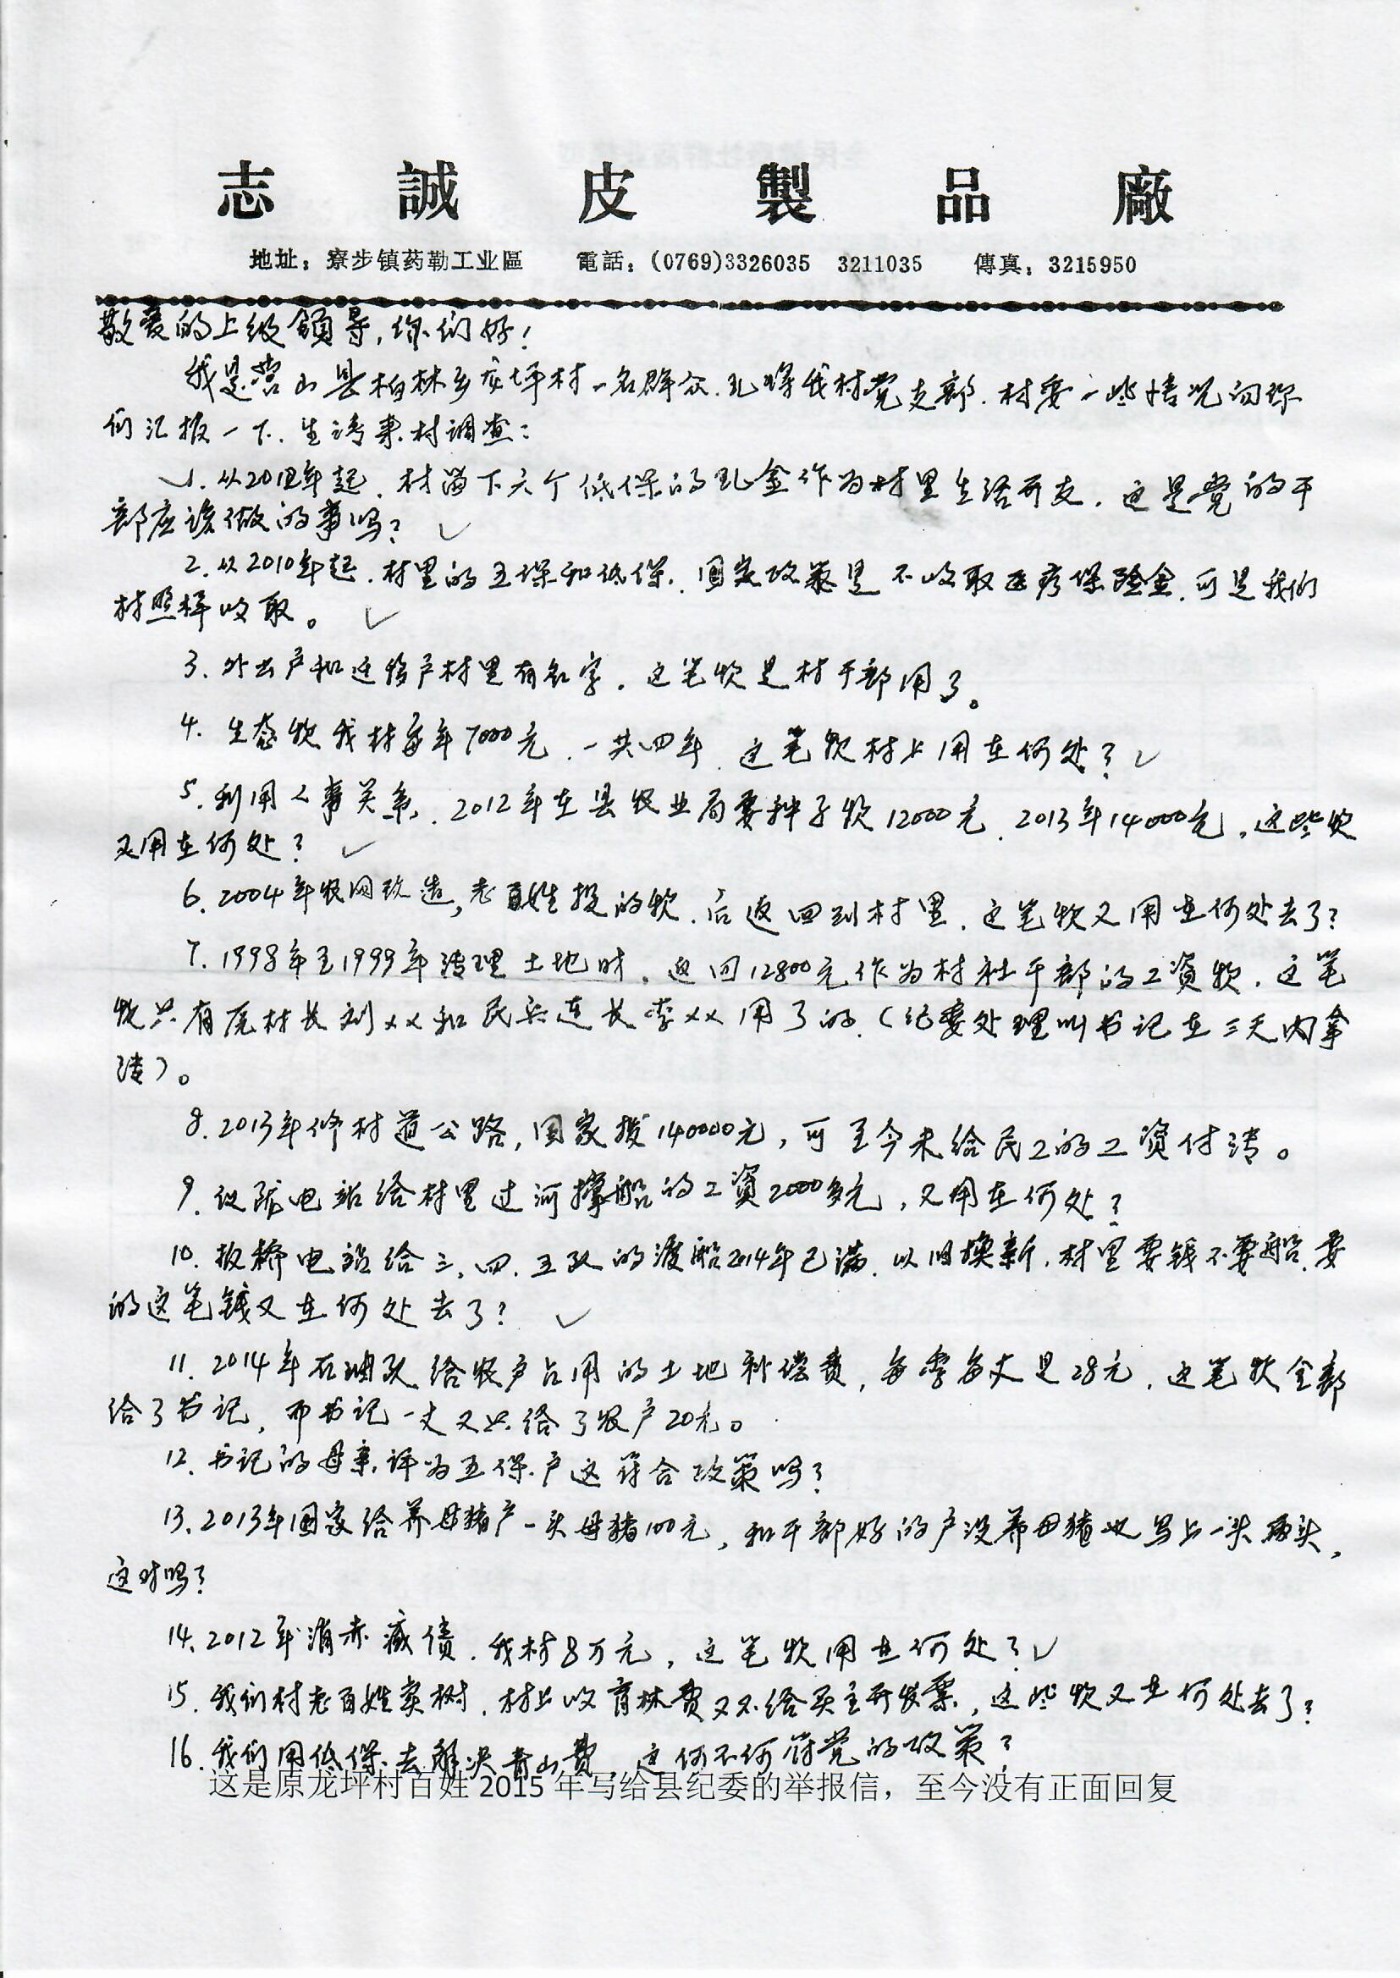 志誠皮製品廠
地址：寮步镇药勒工业區 電話：(0769)3326035 3211035 傳真：3215950
敬爱的上级領导，你们好！
我是营山县柏林乡龙坪村一名群众.现将我村党支部.村委一些情况向你
们汇报一下.并请来村调查：
1.从2012年起.村留下六个低保的现金作为村里生活开支.这是党的干
部应该做的事吗？
2.从2010年起.村里的五保和低保.国家政策是不收取医疗保险金.可是我们
村照样收取。
3.外出户和迁移户村里有名字.这笔款是村干部用了。
4.生态款我村每年7000元.一共四年.这笔款村上用在何处？
5.利用人事关系.2012年在县农业局要种子款12000元.2013年14000元.这些款
又用在何处？
6.2004年农网改造,老百姓投的款.后返回到村里.这笔款又用在何处去了？
7.1998年至1999年清理土地时.返回12800元作为村社干部的工资款.这笔
款只有原村长刘××和民兵连长李××用了的.（纪委处理叫书记在三天内拿
清）。
8.2013年修村道公路,国家拨140000元,可至今未给民工的工资付清。
9.电站给村里过河撑船的工资2000多元,又用在何处？
10.板桥电站给三.四.五队的渡船2014年已满.以旧换新.村里要钱不要船.要
的这笔钱又在何处去了？
11.2014年石油队给农户占用的土地补偿费,每季每丈是28元.这笔款全部
给了书记,而书记一丈又只给了农户20元。
12.书记的母亲评为五保户这符合政策吗？
13.2013年国家给养母猪户一头母猪100元,和干部好的户没养母猪也写上一头两头,
这对吗？
14.2012年消赤减债.我村8万元,这笔款用在何处？
15.我们村老百姓卖树.村上收育林费又不给买主开发票,这些款又在何处去了？
16.我们用低保去解决青山费,这何不何符党的政策？
这是原龙坪村百姓2015年写给县纪委的举报信，至今没有正面回复